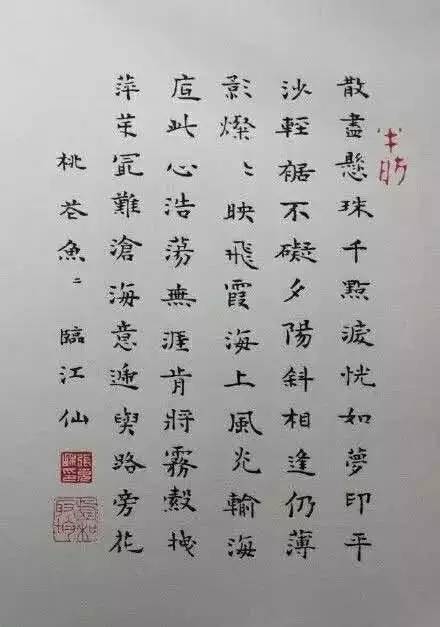 散盡懸珠千點淚恍如夢印平
沙輕裾不礙夕陽斜相逢仍薄
影燦〻映飛霞海上風光輸海
底此心浩蕩無涯肯將霧縠拽
萍芽冣難滄海意遞與路旁花
桃花魚二 臨江仙